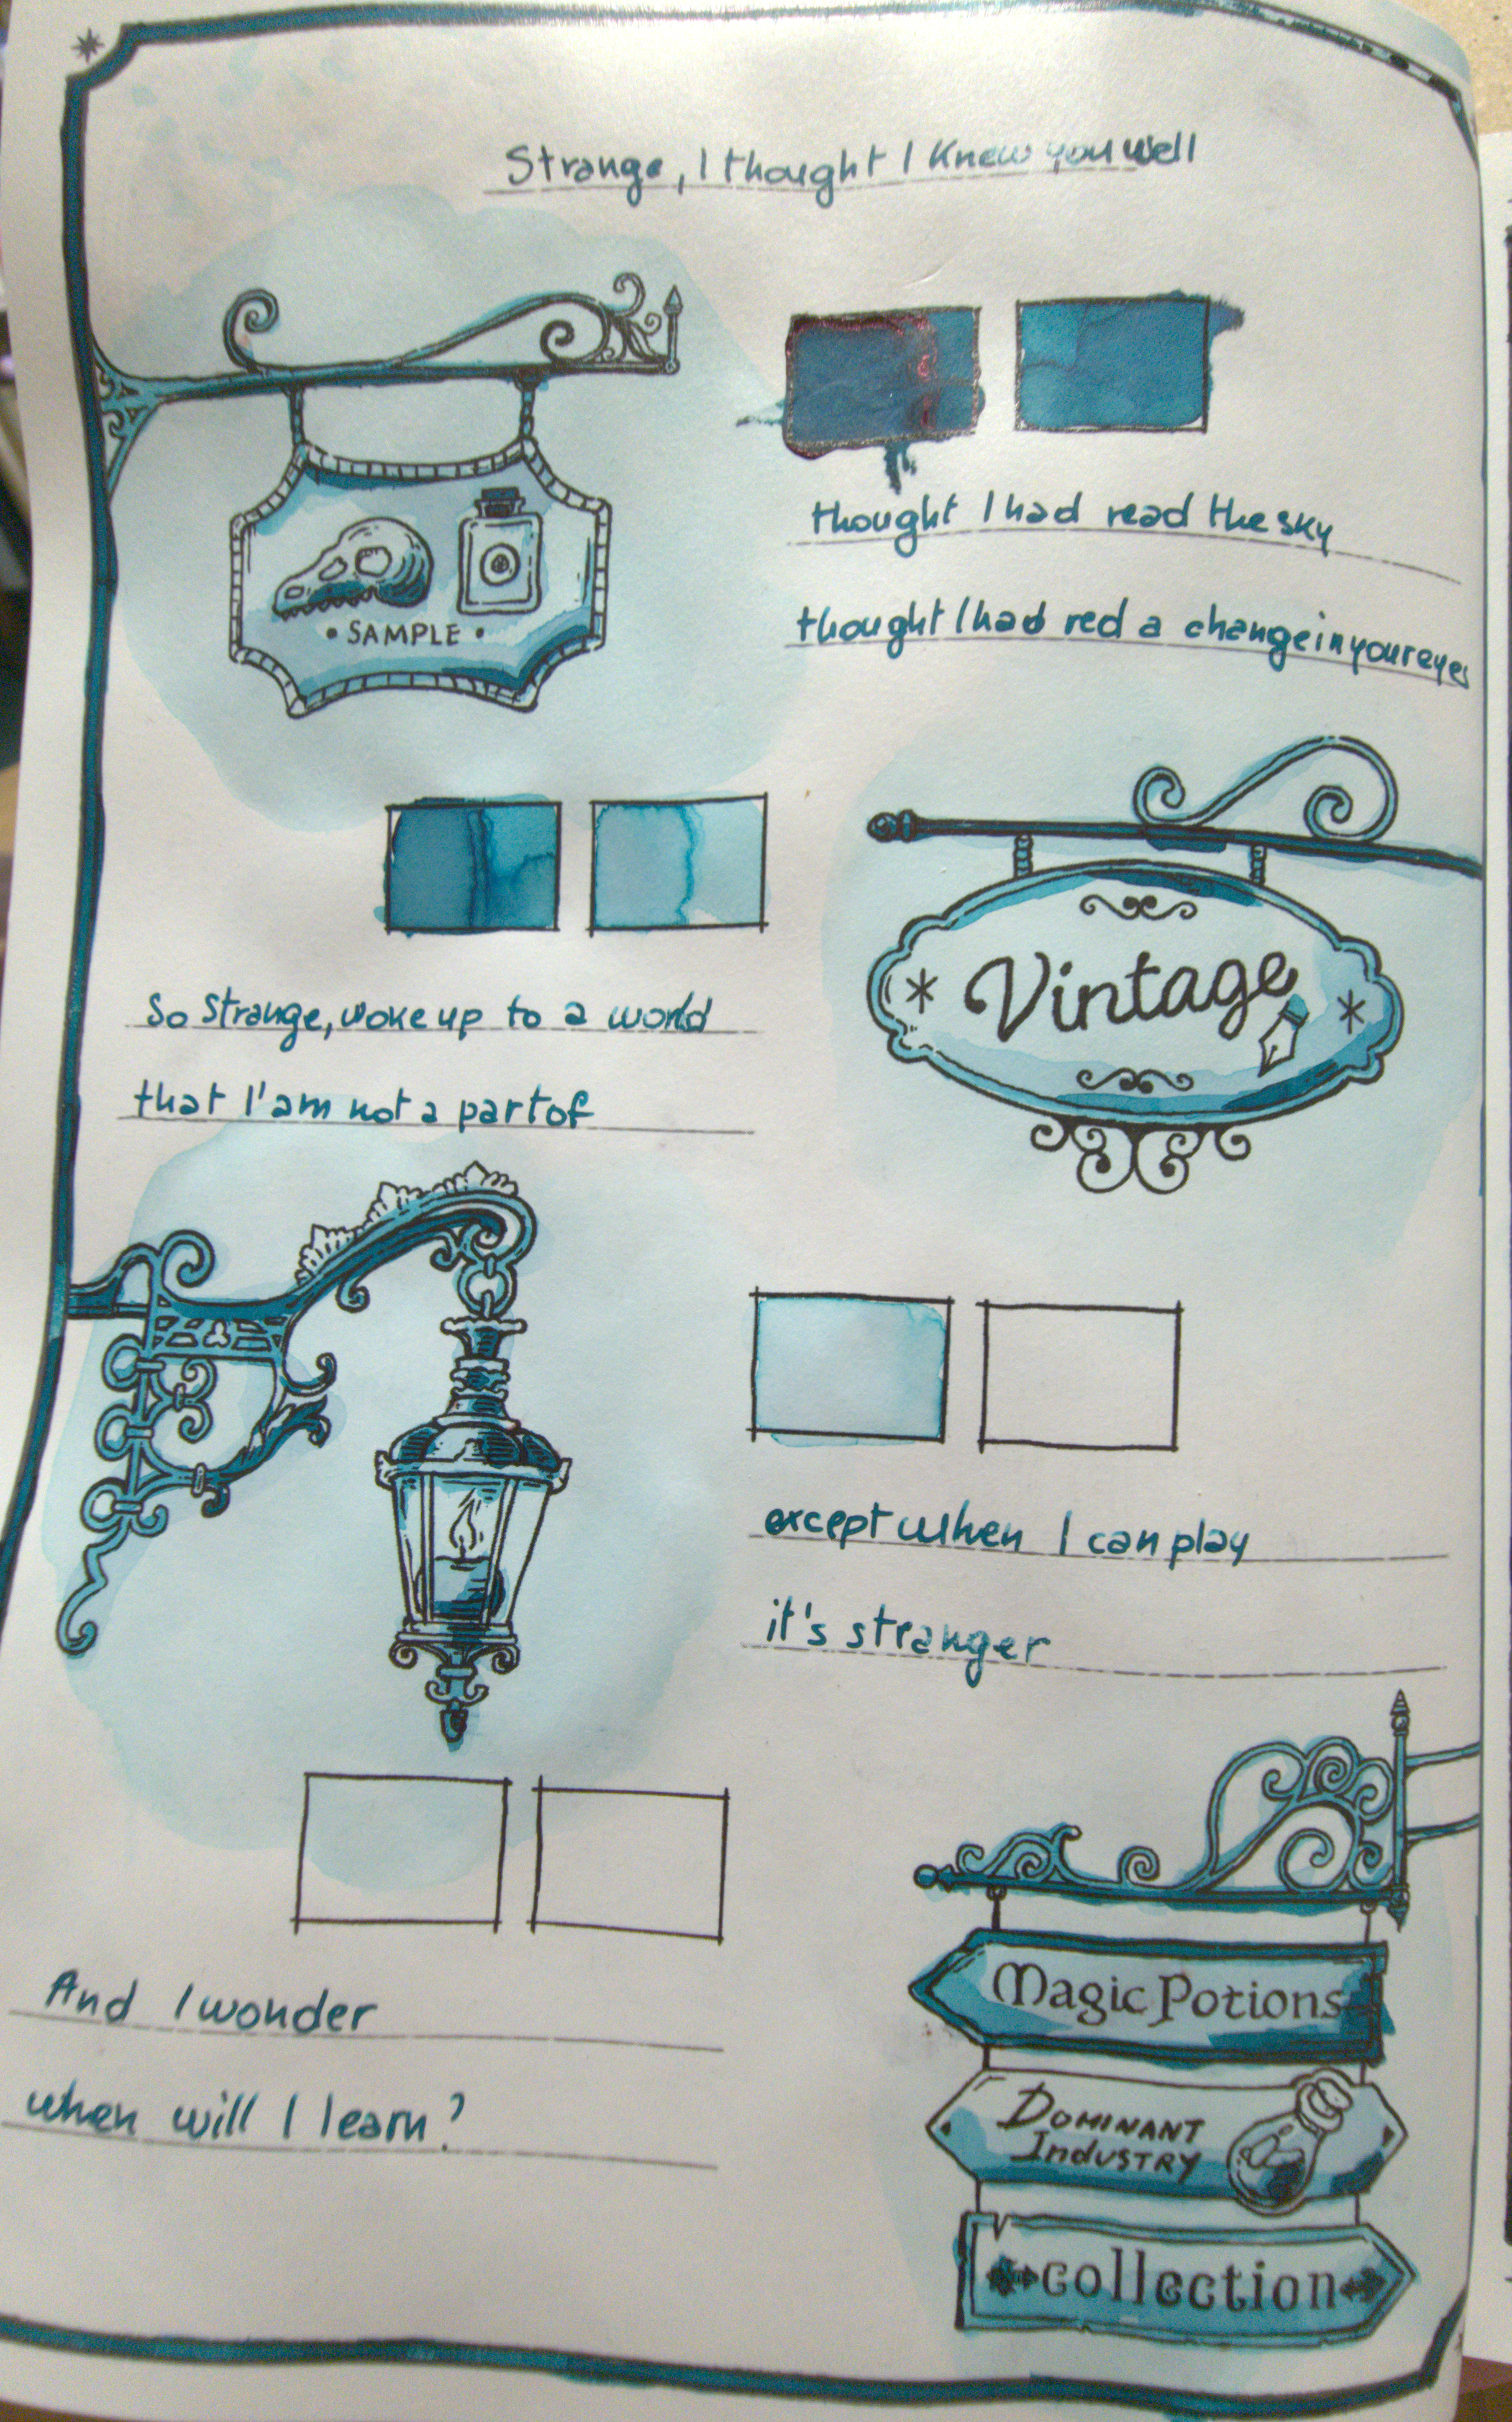 Strange, I thought I knew you well
• SAMPLE •
thought I had read the sky
thought I had red a change in your eyes
Vintage
So Strange, woke up to a world
that I'am not a part of
except when I can play
it's stranger
And I wonder
when will I learn?
Magic Potions
DOMINANT
IndUSTRY
collection